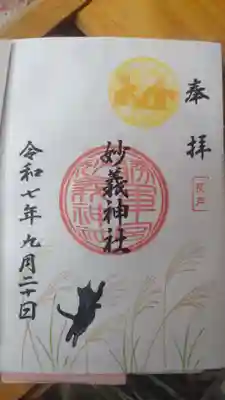 奉拝
妙義神社
令和七年九月二十日